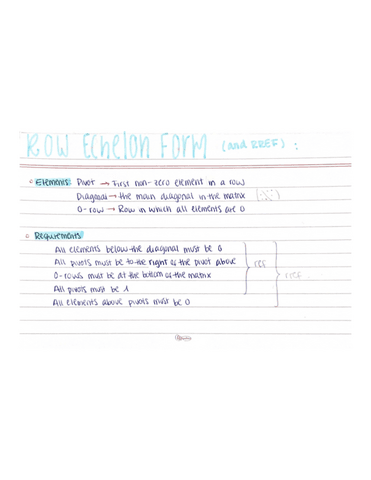 ROW Echelon Form (and RREF) :
Elements: Pivot → First non-zero element in a row
Diagonal → the main diagonal in the matrix
0-row → Row in which all elements are 0
Requirements
All elements below the diagonal must be 0
All pivots must be to the right of the pivot above
ref
0-rows must be at the bottom of the matrix
rref
All pivots must be 1
All elements above pivots must be 0